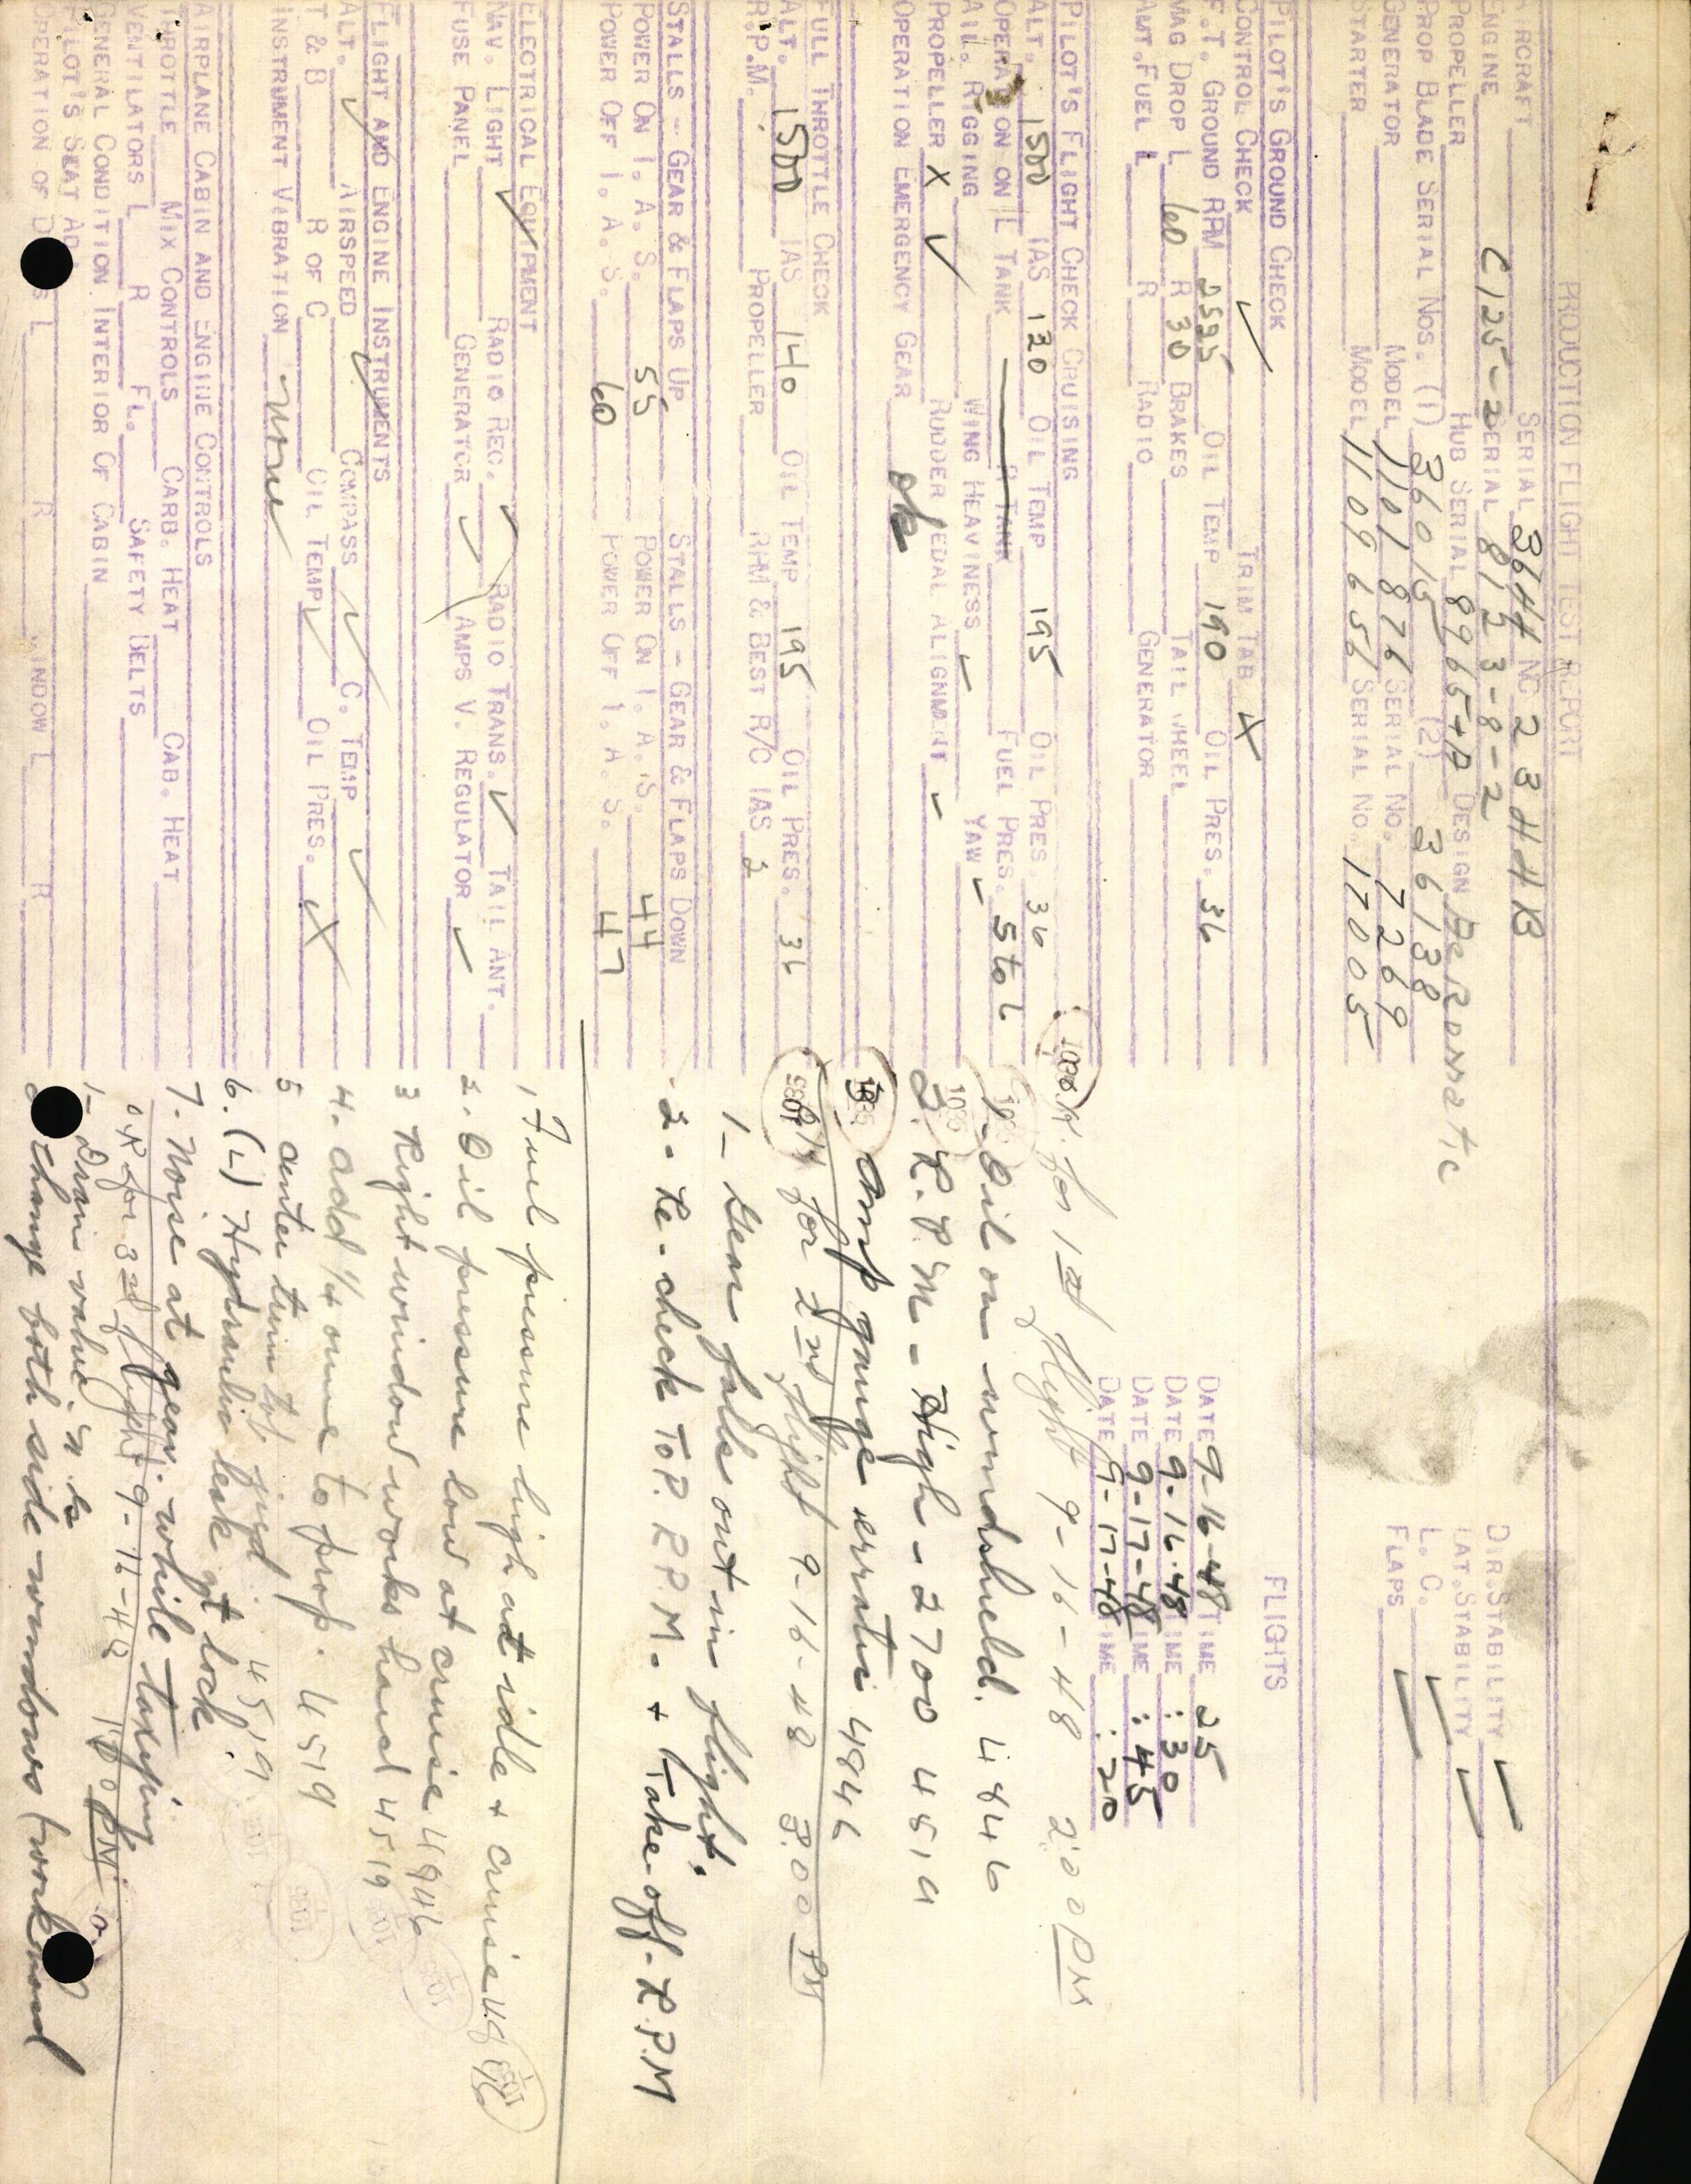 PRODUCTION FLIGHT TEST REPORT
AIRCRAFT SERIAL 3644 NC 2344B
ENGINE C125-2 SERIAL 8123-8-2
PROPELLER HUB SERIAL 8965+A DESIGN Aeromatic
PROP BLADE SERIAL NOS. (1) 36015 (2) 36138
GENERATOR MODEL 1101876 SERIAL NO. 7269
STARTER MODEL 1109656 SERIAL NO. 17005
DIR. STABILITY ✓
LAT. STABILITY ✓
L. C. ✓
FLAPS ✓
PILOT'S GROUND CHECK
CONTROL CHECK ✓ TRIM TAB X
F.T. GROUND RPM 2525 OIL TEMP 190 OIL PRES. 36
MAG DROP L 60 R 30 BRAKES TAIL WHEEL
AMT. FUEL L R RADIO GENERATOR
FLIGHTS
DATE 9-16-48 TIME 25
DATE 9-16-48 TIME :30
DATE 9-17-48 TIME :45
DATE 9-17-48 TIME :20
PILOT'S FLIGHT CHECK CRUISING
ALT. 1500 IAS 130 OIL TEMP 195 OIL PRES. 36
OPERATION ON L TANK R TANK FUEL PRES. 5 to 6
AIL. RIGGING WING HEAVINESS ✓ YAW ✓
PROPELLER X ✓ RUDDER PEDAL ALIGNMANT ✓
OPERATION EMERGENCY GEAR ok
FULL THROTTLE CHECK
ALT. 1500 IAS 140 OIL TEMP 195 OIL PRES. 36
R.P.M. PROPELLER RPM & BEST R/C IAS 2
STALLS - GEAR & FLAPS UP STALLS - GEAR & FLAPS DOWN
POWER ON I. A. S. 55 POWER ON I. A. S. 44
POWER OFF I. A. S. 60 POWER OFF I. A. S. 47
ELECTRICAL EQUIPMENT
NAV. LIGHT ✓ RADIO REC. ✓ RADIO TRANS. ✓ TAIL ANT.
FUSE PANEL GENERATOR ✓ AMPS V. REGULATOR ✓
FLIGHT AND ENGINE INSTRUMENTS
ALT. ✓ AIRSPEED ✓ COMPASS ✓ C. TEMP ✓
T & B R OF C OIL TEMP ✓ OIL PRES. X
INSTRUMENT VIBRATION None
AIRPLANE CABIN AND ENGINE CONTROLS
THROTTLE MIX CONTROLS CARB. HEAT CAB. HEAT
VENTILATORS L R FL. SAFETY BELTS
GENERAL CONDITION INTERIOR OF CABIN
PILOT'S SEAT AD
OPERATION OF D S L R WINDOW L R
for 1st flight 9-16-48 2:00 PM
1. Oil on windshield. 4846
2. R.P.M - High - 2700 4519
3 Amp gauge erratic 4846
for 2nd flight 9-16-48 3:00 PM
1 - Gear falls out in flight.
2 - Re-check T.O.P. R.P.M. + Take-off-R.P.M
1 Fuel pressure high at idle + cruise
2. Oil pressure low at cruise 4846
3 Right window works hard 4519
4. add 1/4 ounce to prop. 4519
5 center turn 4519
6. (L) Hydraulic leak at lock.
7. Noise at gear while taxiing
OK for 3rd flight 9-16-48 PM
1- Drain valve
change both side windows (work hard